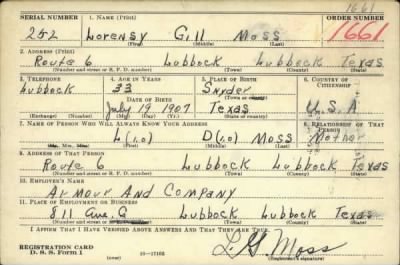 1661
SERIAL NUMBER 1. NAME (Print) ORDER NUMBER
252 Lorensy Gill Moss 1661
(First) (Middle) (Last)
2. ADDRESS (Print)
Route 6 Lubbock Lubbock Texas
(Number and street or R. F. D. number) (Town) (County) (State)
3. TELEPHONE 4. AGE IN YEARS 5. PLACE OF BIRTH 6. COUNTRY OF CITIZENSHIP
Lubbock 33 Snyder
DATE OF BIRTH (Town or county)
July 19 1907 Texas U.S.A
(Exchange) (Number) (Mo.) (Day) (Yr.) (State or country)
7. NAME OF PERSON WHO WILL ALWAYS KNOW YOUR ADDRESS 8. RELATIONSHIP OF THAT PERSON
L(I.O) D(I.O) Moss Mother
(Mr., Mrs., Miss) (First) (Middle) (Last)
9. ADDRESS OF THAT PERSON
Route 6 Lubbock Lubbock Texas
(Number and street or R. F. D. number) (Town) (County) (State)
10. EMPLOYER'S NAME
Armour And Company
11. PLACE OF EMPLOYMENT OR BUSINESS
811 Ave. G Lubbock Lubbock Texas
(Number and street or R. F. D. number) (Town) (County) (State)
I AFFIRM THAT I HAVE VERIFIED ABOVE ANSWERS AND THAT THEY ARE TRUE.
REGISTRATION CARD
D. S. S. Form 1 (over) 16—17105 L. G. Moss
(Registrant's signature)